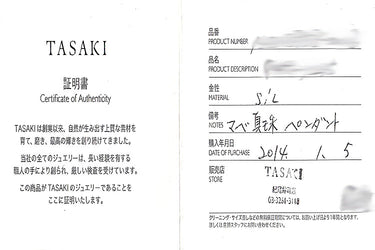 TASAKI
証明書
Certificate of Authenticity
TASAKIは創業以来、自然が生み出す上質な素材を
育て、磨き、最高の輝きを創り続けてきました。
当社の全てのジュエリーは、長い経験を有する
職人の手により創られ、厳しい検査を受けています。
この商品がTASAKIのジュエリーであることを
ここに証明いたします。
品番
PRODUCT NUMBER
品名
PRODUCT DESCRIPTION
金性
MATERIAL SiL
備考
NOTES マベ真珠 ペンダント
購入年月日
DATE OF PURCHASE 2014. 1. 5
販売店
STORE
TASAKI
03-3264-3188
クリーニング・サイズ直しなどの無料保証期間については、お買い上げ日より1年間となります。
詳しくは直営スタッフにお問い合わせください。